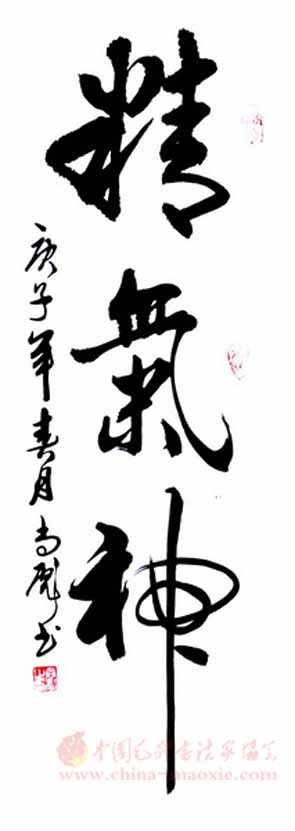 精氣神
庚子年春月尚彪书
中国毛体书法家协会
www.china-maoxie.com